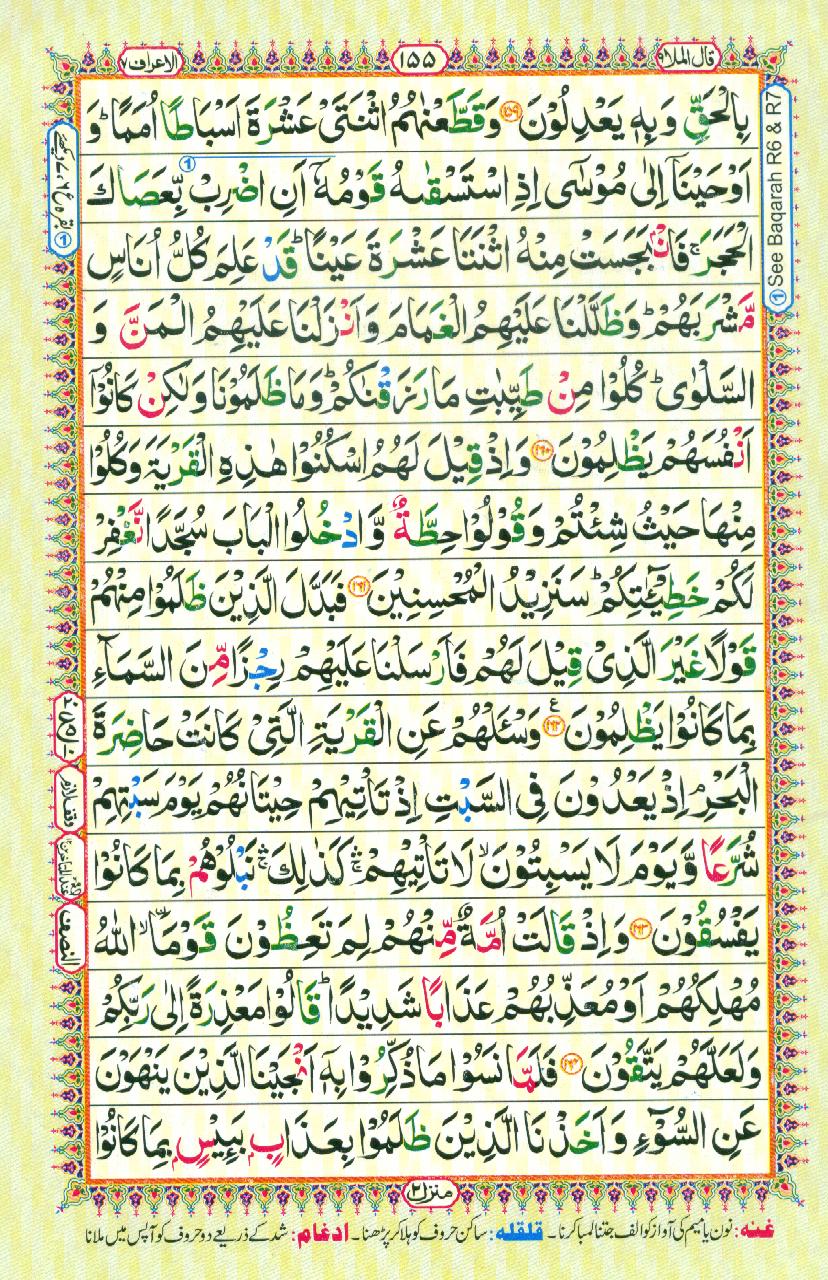 قال الملا ۹
۱۵۵
الاعراف ۷
بِالْحَقِّ وَبِهٖ يَعْدِلُوْنَ ﴿۱۵۹﴾ وَقَطَّعْنٰهُمُ اثْنَتَيْ عَشْرَةَ اَسْبَاطًا اُمَمًا ؕ وَ
اَوْحَيْنَاۤ اِلٰى مُوْسٰۤى اِذِ اسْتَسْقٰىهُ قَوْمُهٗۤ اَنِ اضْرِبْ بِّعَصَاكَ
الْحَجَرَ ۚ فَانْۢبَجَسَتْ مِنْهُ اثْنَتَا عَشْرَةَ عَيْنًا ؕ قَدْ عَلِمَ كُلُّ اُنَاسٍ
مَّشْرَبَهُمْ ؕ وَظَلَّلْنَا عَلَيْهِمُ الْغَمَامَ وَاَنْزَلْنَا عَلَيْهِمُ الْمَنَّ وَ
السَّلْوٰى ؕ كُلُوْا مِنْ طَيِّبٰتِ مَا رَزَقْنٰكُمْ ؕ وَمَا ظَلَمُوْنَا وَلٰكِنْ كَانُوْۤا
اَنْفُسَهُمْ يَظْلِمُوْنَ ﴿۱۶۰﴾ وَاِذْ قِيْلَ لَهُمُ اسْكُنُوْا هٰذِهِ الْقَرْيَةَ وَكُلُوْا
مِنْهَا حَيْثُ شِئْتُمْ وَقُوْلُوْا حِطَّةٌ وَّادْخُلُوا الْبَابَ سُجَّدًا نَّغْفِرْ
لَكُمْ خَطِيْٓـٰٔتِكُمْ ؕ سَنَزِيْدُ الْمُحْسِنِيْنَ ﴿۱۶۱﴾ فَبَدَّلَ الَّذِيْنَ ظَلَمُوْا مِنْهُمْ
قَوْلًا غَيْرَ الَّذِيْ قِيْلَ لَهُمْ فَاَرْسَلْنَا عَلَيْهِمْ رِجْزًا مِّنَ السَّمَآءِ
بِمَا كَانُوْا يَظْلِمُوْنَ ﴿۱۶۲﴾ ع وَسْـَٔلْهُمْ عَنِ الْقَرْيَةِ الَّتِيْ كَانَتْ حَاضِرَةَ
الْبَحْرِ ۘ اِذْ يَعْدُوْنَ فِي السَّبْتِ اِذْ تَاْتِيْهِمْ حِيْتَانُهُمْ يَوْمَ سَبْتِهِمْ
شُرَّعًا وَّيَوْمَ لَا يَسْبِتُوْنَ ۙ لَا تَاْتِيْهِمْ ۛۚ كَذٰلِكَ ۛۚ نَبْلُوْهُمْ بِمَا كَانُوْا
يَفْسُقُوْنَ ﴿۱۶۳﴾ وَاِذْ قَالَتْ اُمَّةٌ مِّنْهُمْ لِمَ تَعِظُوْنَ قَوْمَا ۙ اللّٰهُ
مُهْلِكُهُمْ اَوْ مُعَذِّبُهُمْ عَذَابًا شَدِيْدًا ؕ قَالُوْا مَعْذِرَةً اِلٰى رَبِّكُمْ
وَلَعَلَّهُمْ يَتَّقُوْنَ ﴿۱۶۴﴾ فَلَمَّا نَسُوْا مَا ذُكِّرُوْا بِهٖۤ اَنْجَيْنَا الَّذِيْنَ يَنْهَوْنَ
عَنِ السُّوْٓءِ وَاَخَذْنَا الَّذِيْنَ ظَلَمُوْا بِعَذَابٍۭ بَئِيْسٍۭ بِمَا كَانُوْا
① See Baqarah R6 & R7
النصف
منزل ۲
غنہ: نون یا میم کی آواز کو الف جتنا لمبا کرنا۔ قلقلہ: ساکن حروف کو ہلا کر پڑھنا۔ ادغام: شد کے ذریعے دو حروف کو آپس میں ملانا